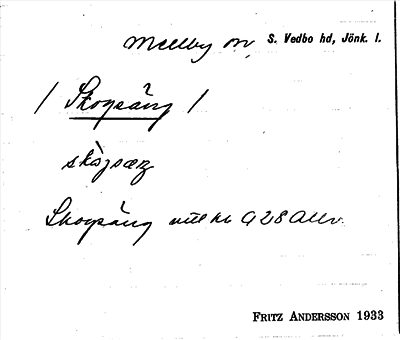 Mellby sn, S. Vedbo hd, Jönk. l.
/ Skogsäng /
skògsæŋ
Skogsäng
FRITZ ANDERSSON 1933